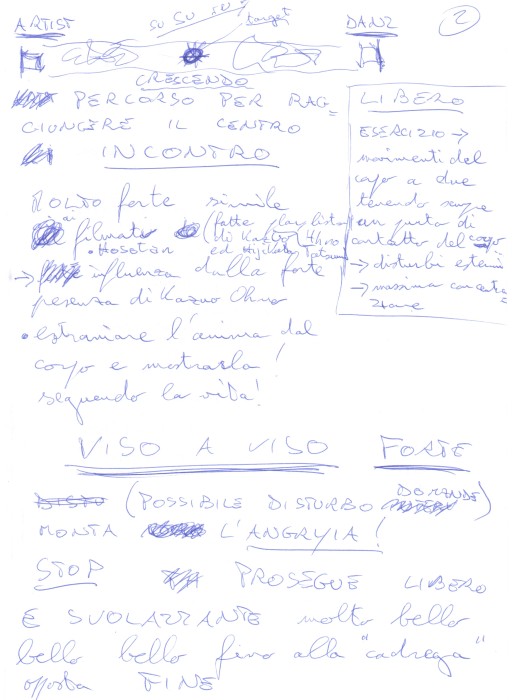 ARTIST
SU SU SU
target
DANZ
2
CRESCENDO
PERCORSO PER RAG=
GIUNGERE IL CENTRO
INCONTRO
MOLTO forte simile
ai filmati (fatte playlist
di Kazuo Ohno
• Hosotan ed Hijikata Tatsumi
→ influenza dalla forte
presenza di Kazuo Ohno
• estraniare l'anima dal
corpo e mostrarla!
seguendo la vita!
LIBERO
ESERCIZIO →
movimenti del
corpo a due
tenendo sempre
un punto di
contatto del corpo
→ disturbi esterni
→ massima concentra=
zione
VISO A VISO FORTE
(POSSIBILE DISTURBO DOMANDE)
MONTA L'ANGRYIA!
STOP PROSEGUE LIBERO
E SVOLAZZANTE molto bello
bello bello fino alla "cadrega"
opposta FINE